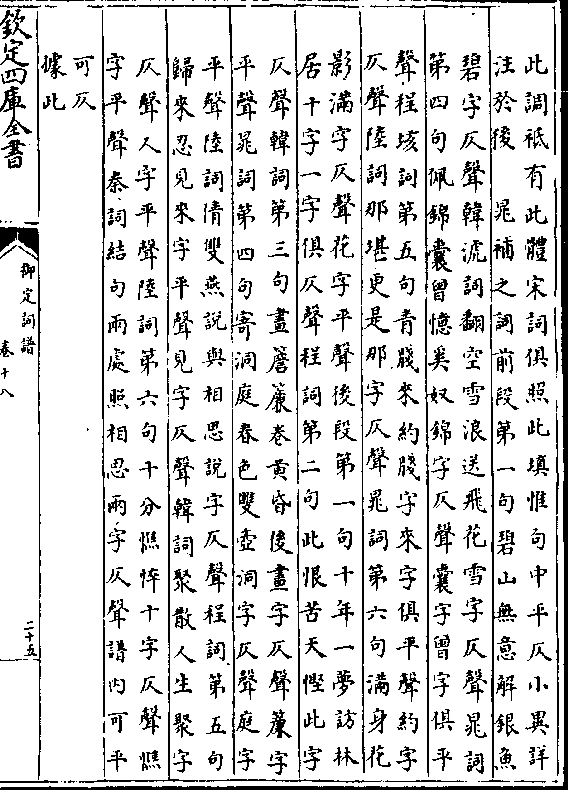 此調祗有此體宋詞俱照此填惟句中平仄小異詳
注於後　晁補之詞前段第一句碧山無意解銀魚
碧字仄聲韓淲詞翻空雪浪送飛花雪字仄聲晁詞
第四句佩錦囊曾憶奚奴錦字仄聲囊字曾字俱平
聲程垓詞第五句青牋來約牋字來字俱平聲約字
仄聲陸詞那堪更是那字仄聲晁詞第六句滿身花
影滿字仄聲花字平聲後段第一句十年一夢訪林
居十字一字俱仄聲程詞第二句此恨苦天慳此字
仄聲韓詞第三句畫簷簾卷黄昏後畫字仄聲簾字
平聲晁詞第四句寄洞庭春色雙壺洞字仄聲庭字
平聲陸詞倩雙燕說與相思說字仄聲程詞第五句
歸來忍見來字平聲見字仄聲韓詞聚散人生聚字
仄聲人字平聲陸詞第六句十分憔悴十字仄聲憔
字平聲秦詞結句兩處照相思兩字仄聲譜内可平
可仄
據此
欽定四庫全書
御定詞譜
卷十八
二十五